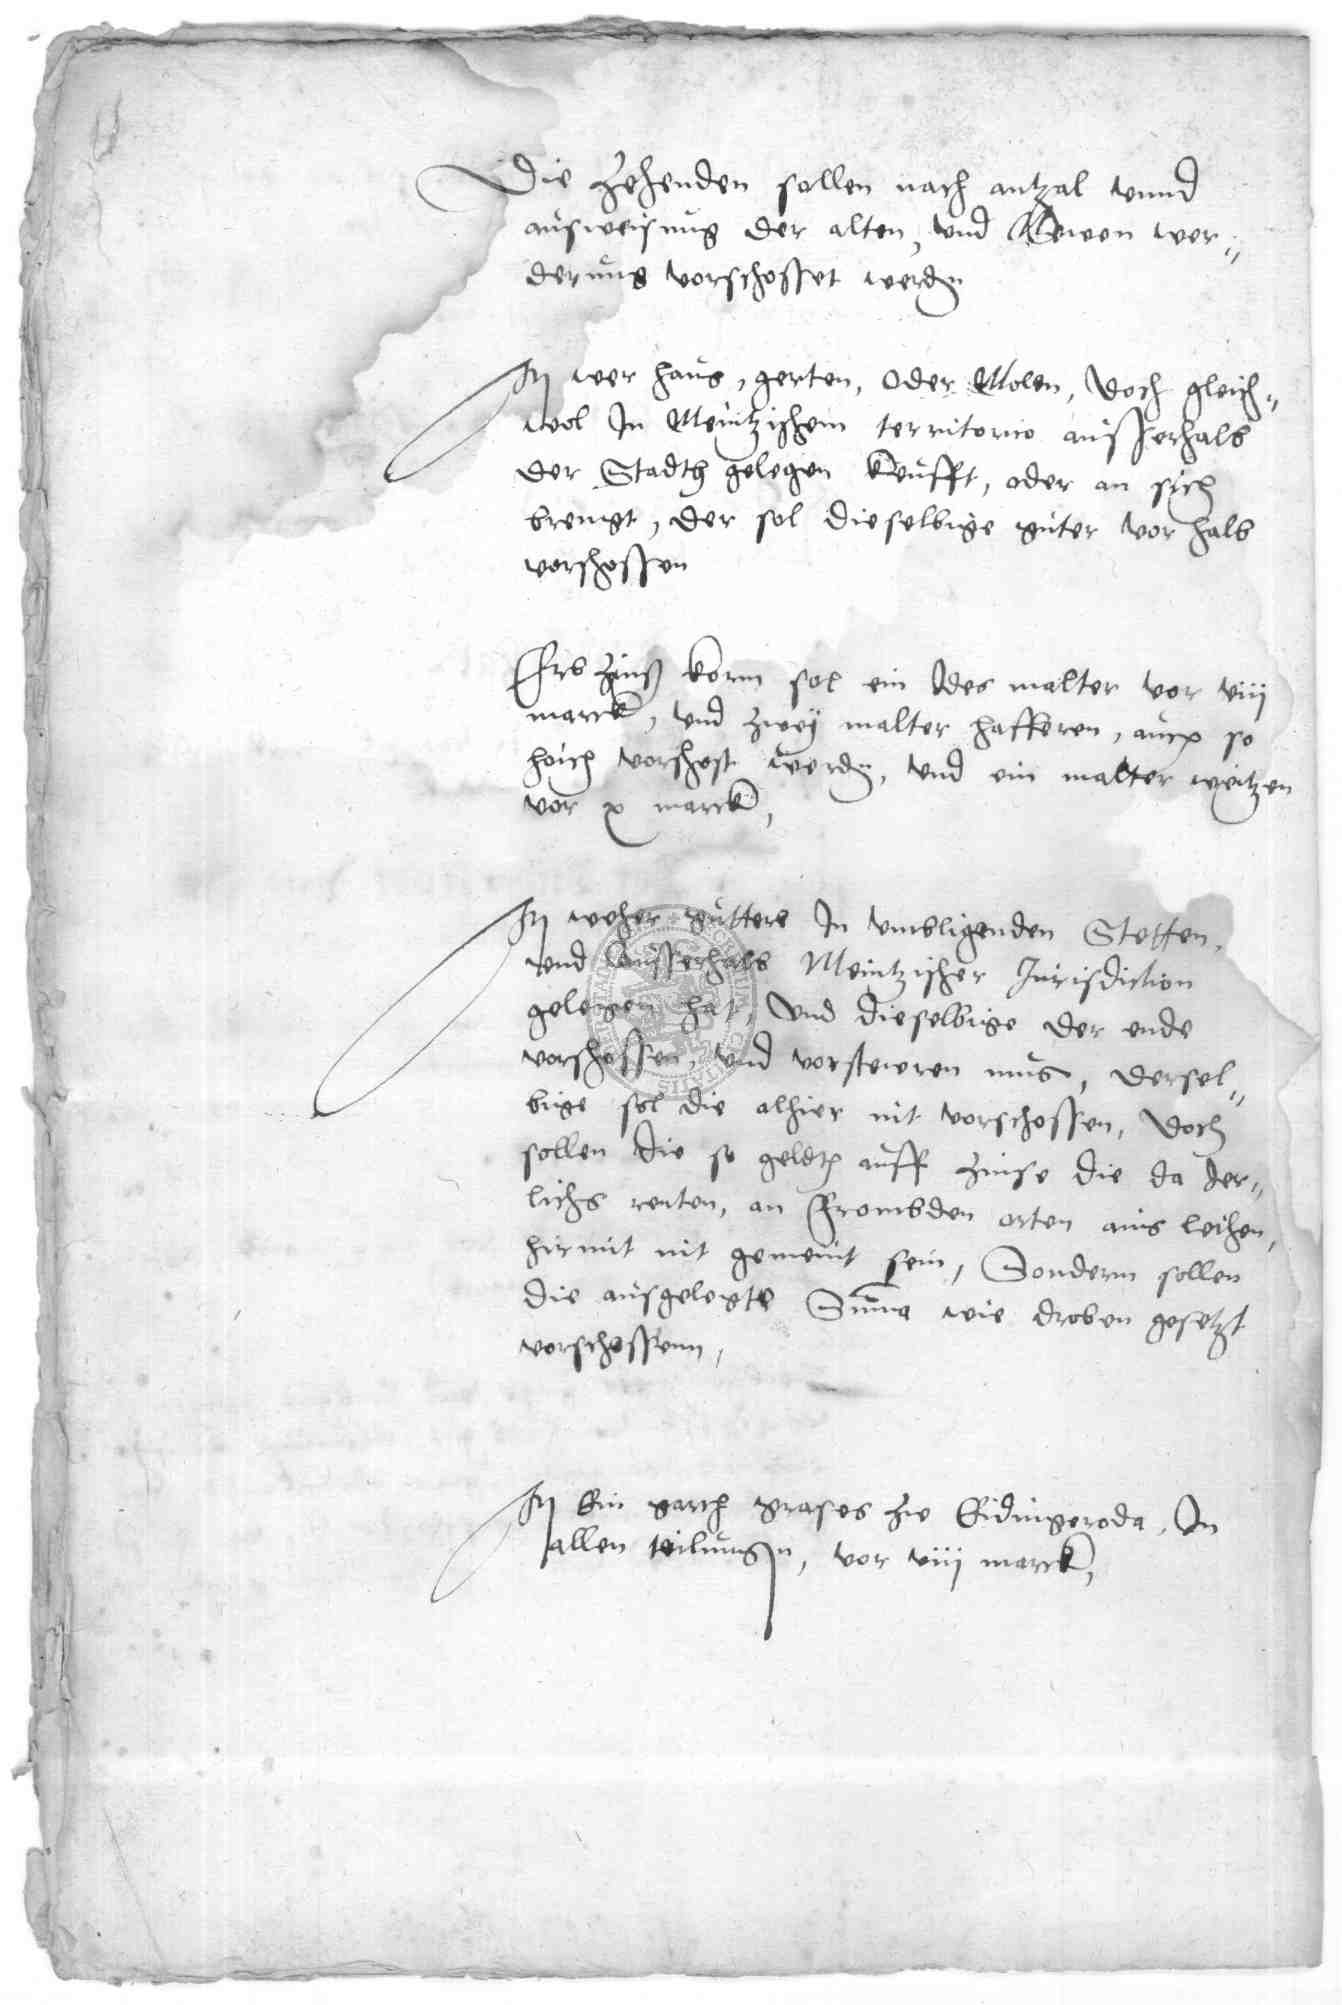 Die Zehenden sollen nach antzal vnnd
ausweisung der alten, vnd Newen wer„
derung vorschosset werden
Jtem wer haus, gerten, oder Molen, doch gleich„
wol Jn Meintzischem territorio ausserhalb
der Stadth gelegen keufft, oder an sich
brengt, der sol dieselbige guter vor halb
vorschossen
Erb Zinß korn sol ein Jdes malter vor viij
marck, vnd zweij malter hafferen, auch so
hoich vorschost werden, vnd ein malter weitzen
vor x marck,
Jtem weher guttere Jn vmbligenden Stetten,
vnd ausserhalb Meintzischer Jurisdiction
gelegen hat, vnd dieselbige der ende
vorschossen, vnd vorsteweren mus, dersel„
bige sol die alhier nit vorschossen, doch
sollen die so geldth auff Zinse die da Jer„
lichs renten, an frombden orten aus leihen,
hirmit nit gemeint sein, Sondern sollen
die ausgelegte Summa wie droben gesetzt
vorschossenn,
Jtem Ein garth grases zu Eidingeroda, Jn
allen teilungen, vor viij marck,